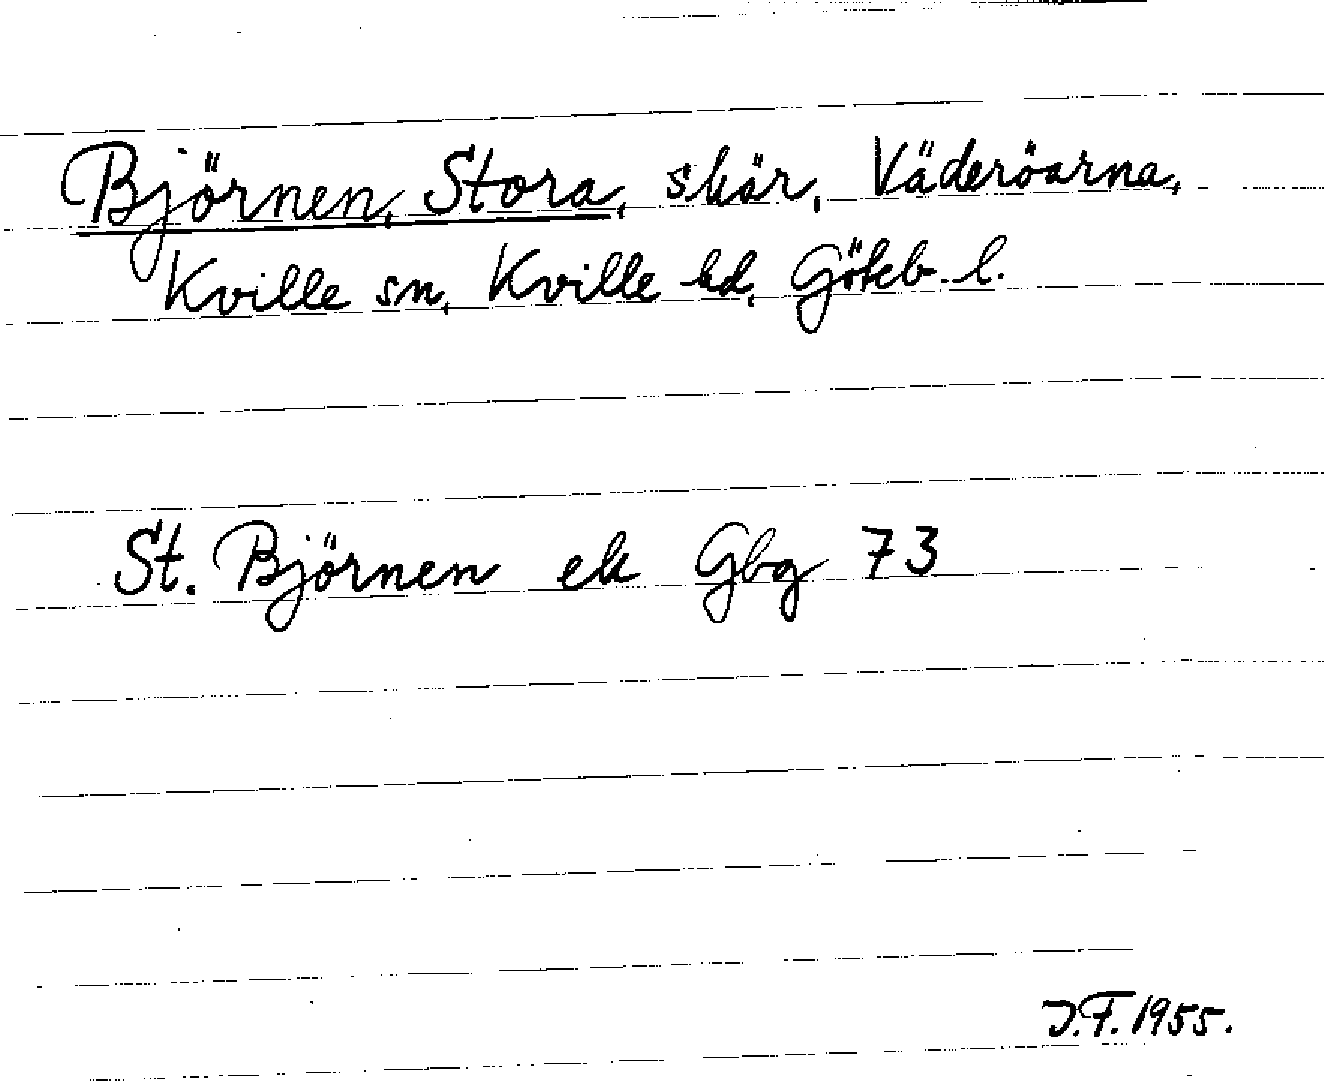 Björnen, Stora, skär, Väderöarna,
Kville sn, Kville hd, Göteb. l.
St. Björnen ek Gbg 73
J.F. 1955.